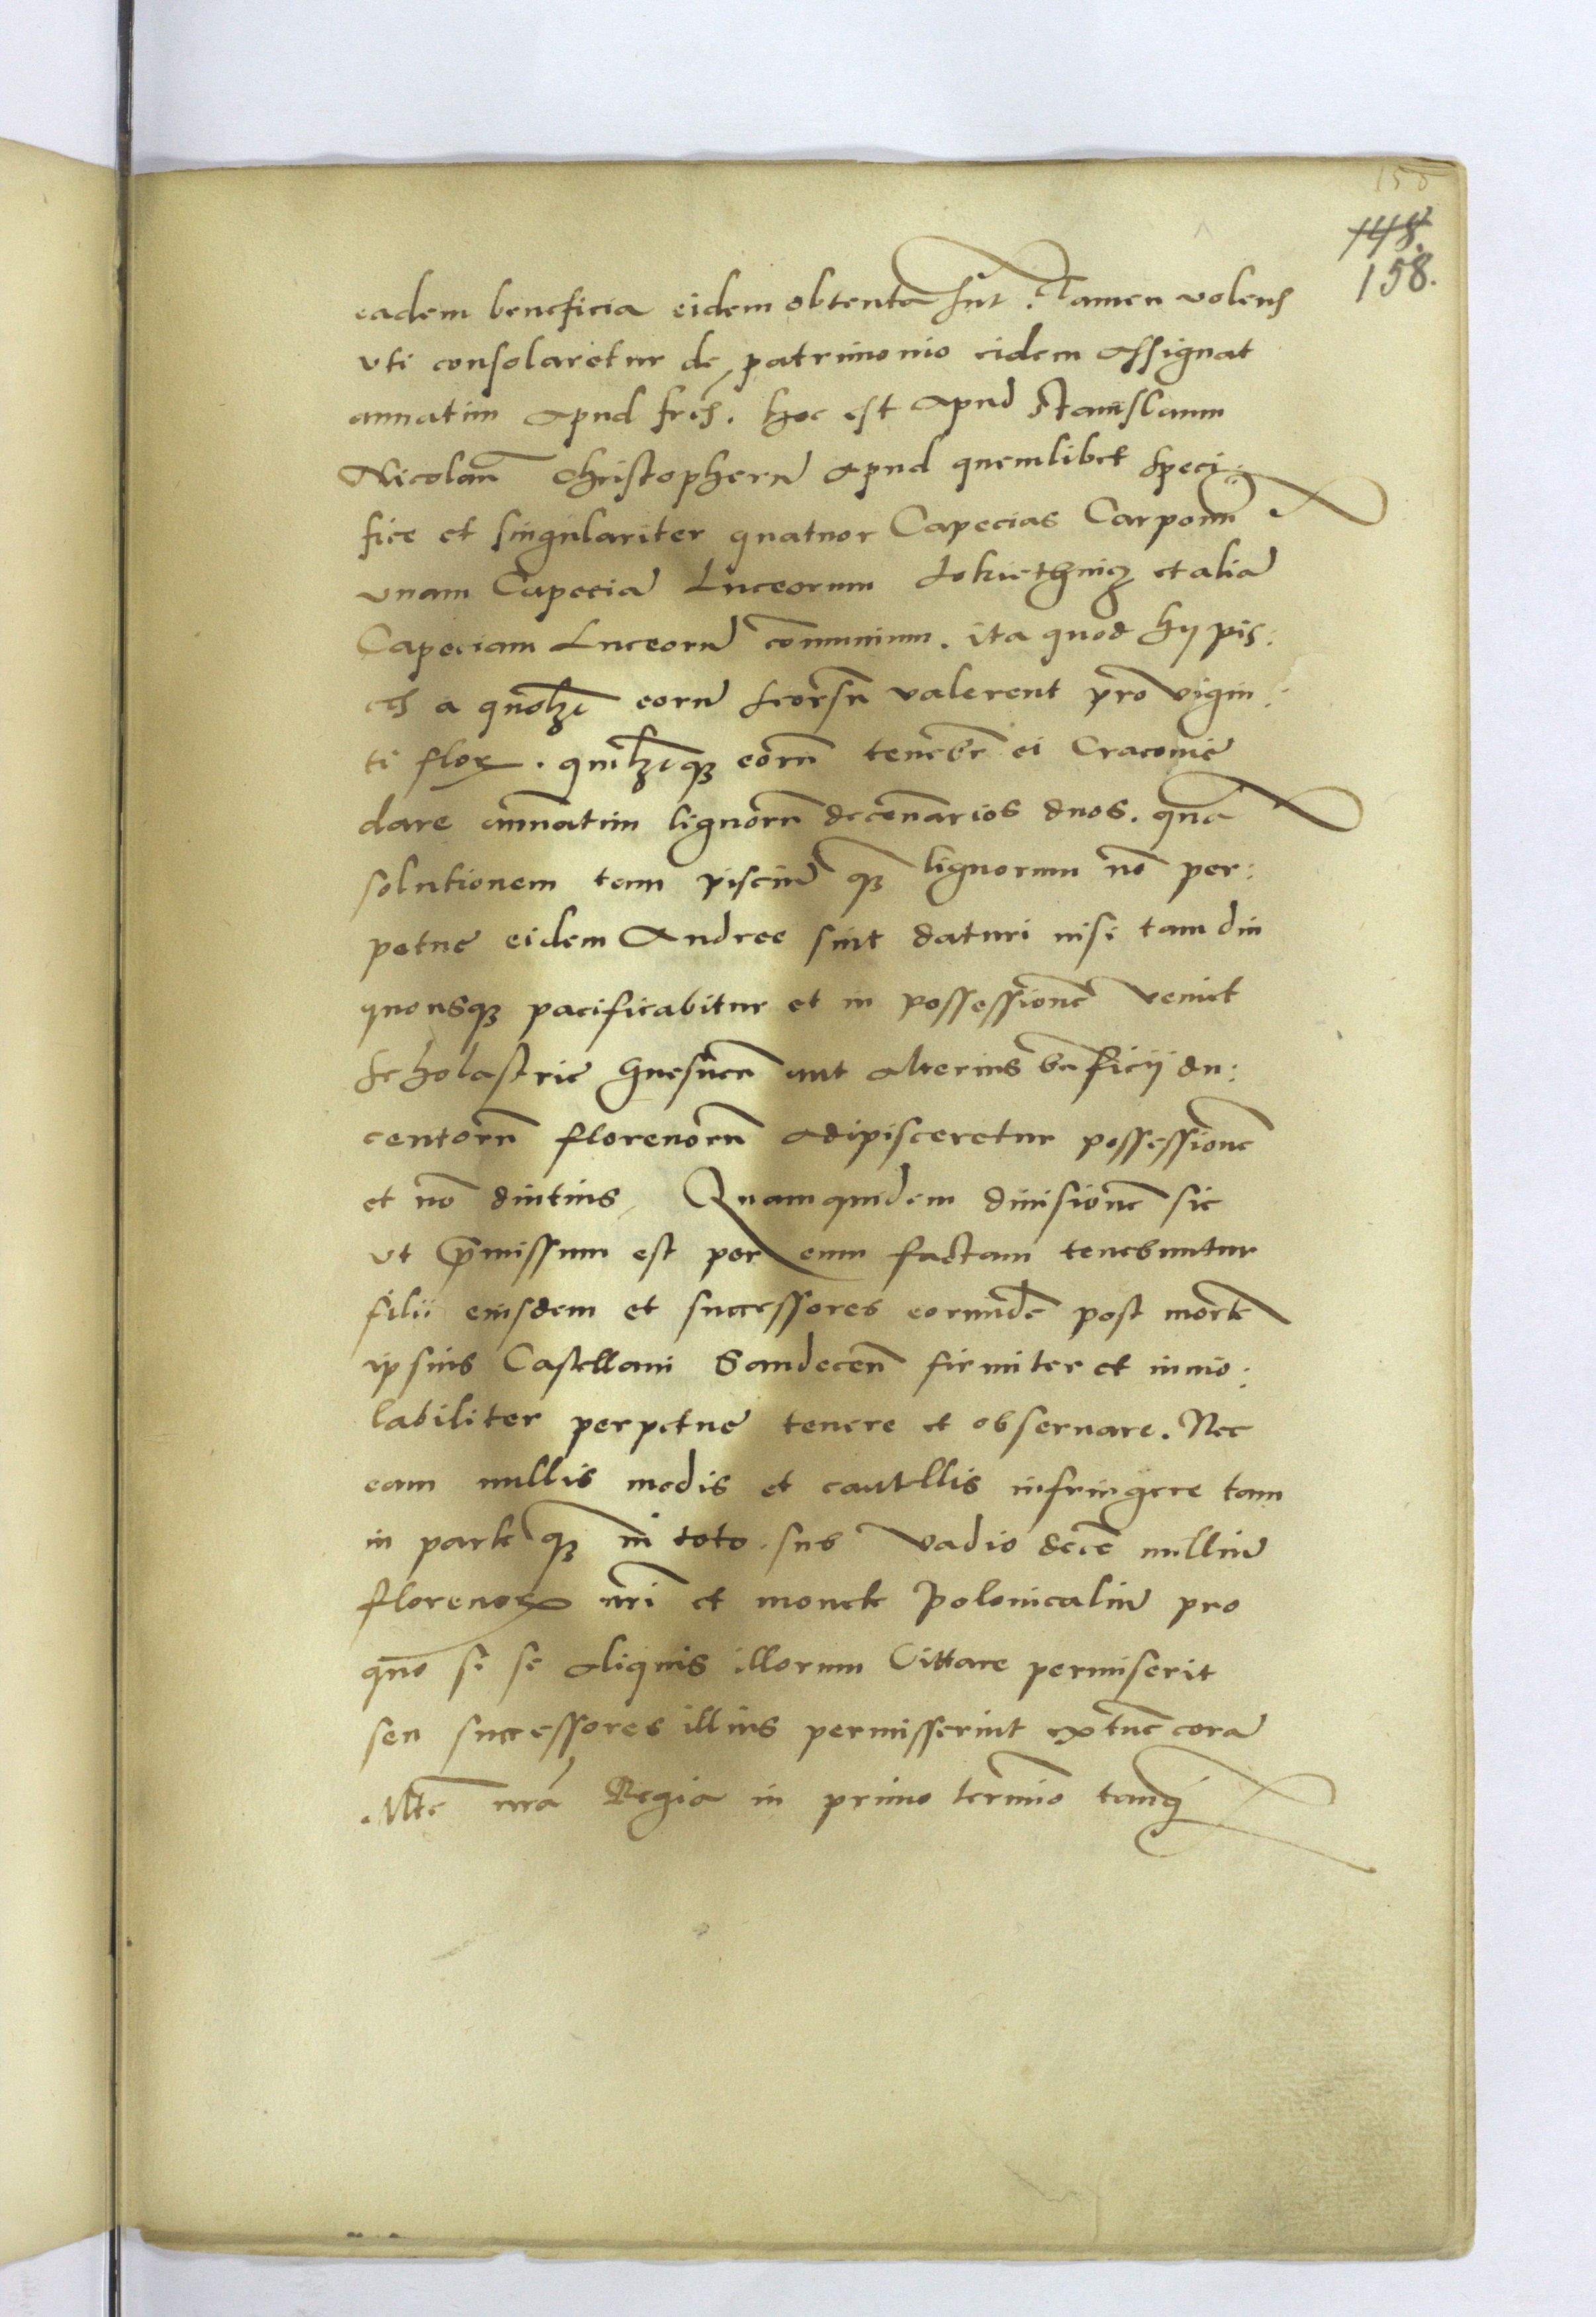 158
148.
158.
eadem beneficia eidem obtenta sūt. Tamen volens
vti consolaretur de patrimonio eidem assignat
annatim apud frēs. hoc est apud Stanislaum
Nicolaū Christopherū apud quemlibet speci:
fice et singulariter quatuor Capecias Carponū
vnam Capeciā Luceorum Lokiethnicz et aliā
Capeciam Luceorū cōmunium. ita quod hij pis:
ces a quolꝫt eorū seorsū valerent pro vigin:
ti floꝝ. quilꝫtqꝫ eorū tenebr̄ ei Cracouie
dare annatim lignorū decenarios duos. quā
solutionem tam pisciū qꝫ lignorum nō per:
petue eidem Andree sint daturi nisi tam diu
quousqꝫ pacificabitur et in possessionē veniet
scholastrie Gnesneñ aut alterius bn̄ficij du:
centorū florenorū adipisceretur possessionē
et nō diutius, Quamquidem diuisionē sic
vt p̄missum est per eum factam tenebuntur
filii eiusdem et successores eorundē post mortē
ipsius Castellani Sandeceñ firmiter et inuio:
labiliter perpetue tenere et obseruare. Nec
eam nullis modis et cautellis infringere tam
in parte qꝫ in toto. sub vadio decē milliū
florenoꝝ nri et monete Polonicaliū pro
quo si se aliquis illorum Cittare permiserit
seu successores illius permisserint extūc corā
Mte nrā Regia in primo termīo tanq̄